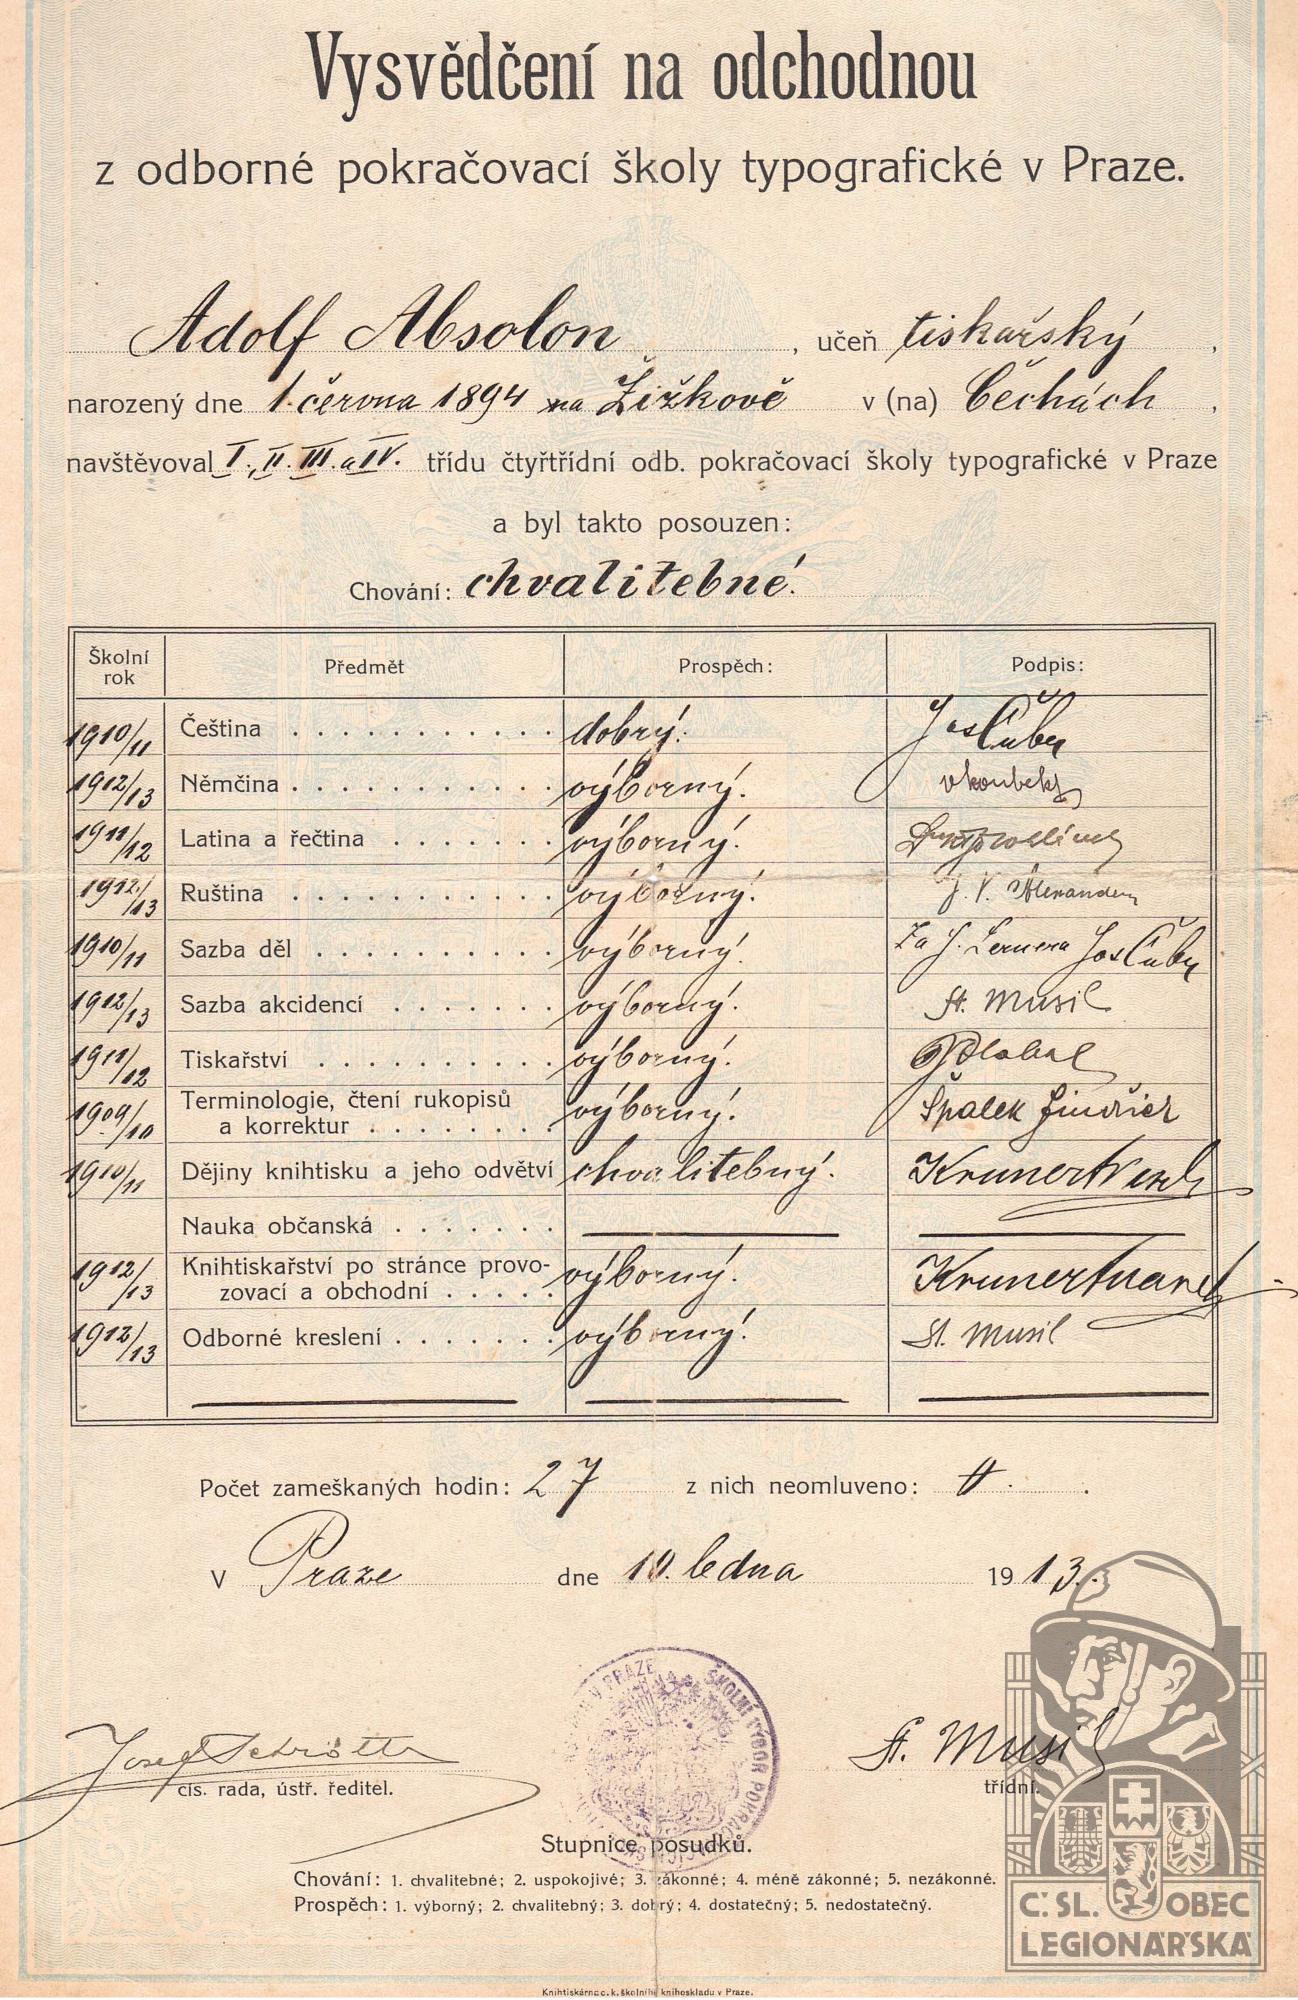 Vysvědčení na odchodnou
z odborné pokračovací školy typografické v Praze.
Adolf Absolon, učeň tiskařský,
narozený dne 1. června 1894 na Žižkově v (na) Čechách,
navštěvoval I., II. III. a IV. třídu čtyřtřídní odb. pokračovací školy typografické v Praze
a byl takto posouzen:
Chování: chvalitebné.
Školní rok Předmět Prospěch: Podpis:
1910/11 Čeština dobrý. Jos Čuba
1912/13 Němčina výborný.
1911/12 Latina a řečtina výborný.
1912/13 Ruština výborný. J. V.
1910/11 Sazba děl výborný. Za J. Lernera Jos Čuba
1912/13 Sazba akcidencí výborný. St. Musil
1911/12 Tiskařství výborný.
1909/10 Terminologie, čtení rukopisů
a korrektur výborný. Špalek Jindřich
1910/11 Dějiny knihtisku a jeho odvětví chvalitebný.
Nauka občanská
1912/13 Knihtiskařství po stránce provo-
zovací a obchodní výborný.
1912/13 Odborné kreslení výborný. St. Musil
Počet zameškaných hodin: 27 z nich neomluveno:
V Praze dne 10. ledna 1913.
Josef St. Musil
cís. rada, ústř. ředitel. třídní.
ŠKOLNÍ VÝBOR V PRAZE
Stupnice posudků.
Chování: 1. chvalitebné; 2. uspokojivé; 3. zákonné; 4. méně zákonné; 5. nezákonné.
Prospěch: 1. výborný; 2. chvalitebný; 3. dobrý; 4. dostatečný; 5. nedostatečný.
Č. SL. OBEC
LEGIONÁŘSKÁ
Knihtiskárna c. k. školního knihoskladu v Praze.